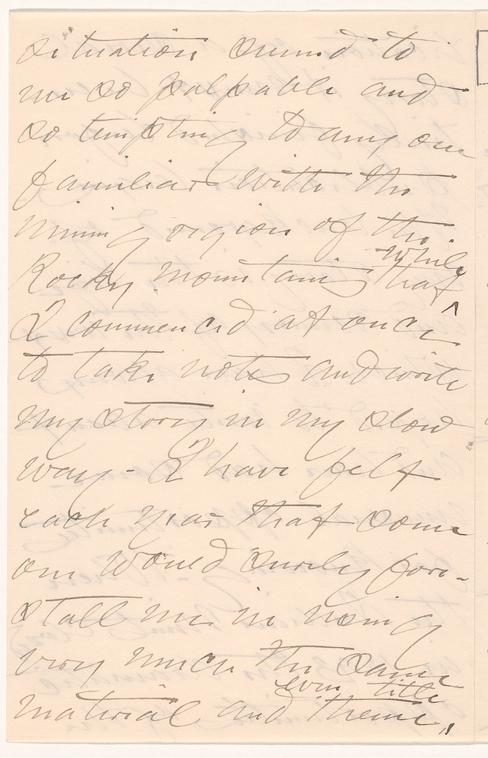 situation seemed to
me so palpable and
so tempting to any one
familiar with the
mining region of the
while
Rocky mountains that
I commenced at once
to take notes and write
my story in my slow
way - I have felt
each year that some
one would surely fore-
stall me in using
very much the same
even title
material and theme,